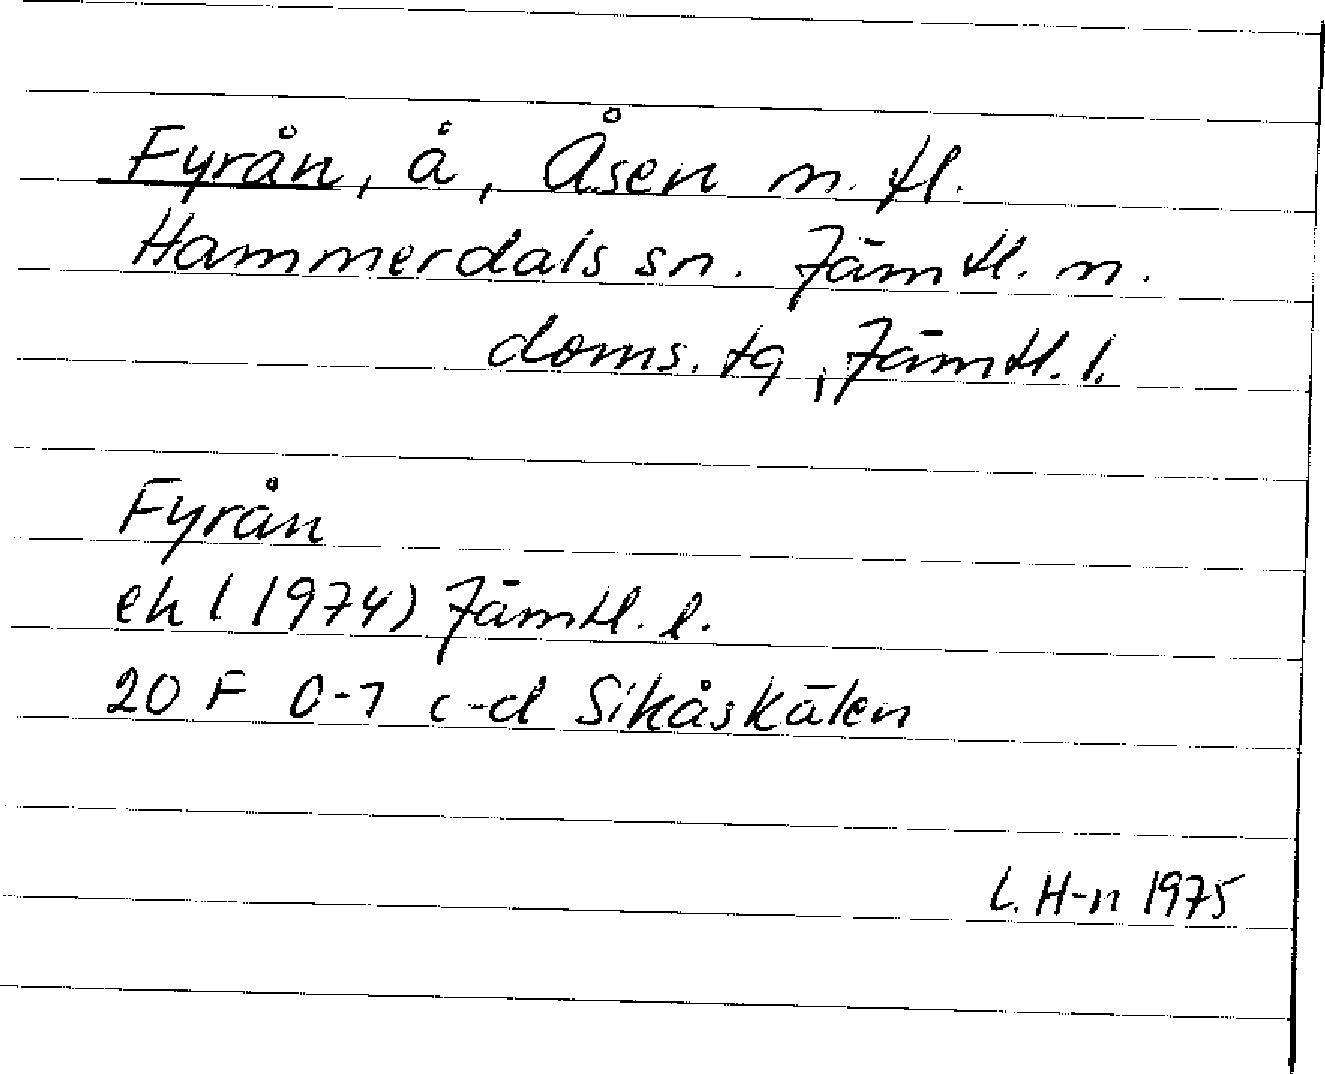 Fyrån, å, Åsen m. fl.
Hammerdals sn. Jämtl. n.
doms. tg, Jämtl. l.
Fyrån
ek (1974) Jämtl. l.
20 F 0-1 c-d Sikåskälen
L. H-n 1975